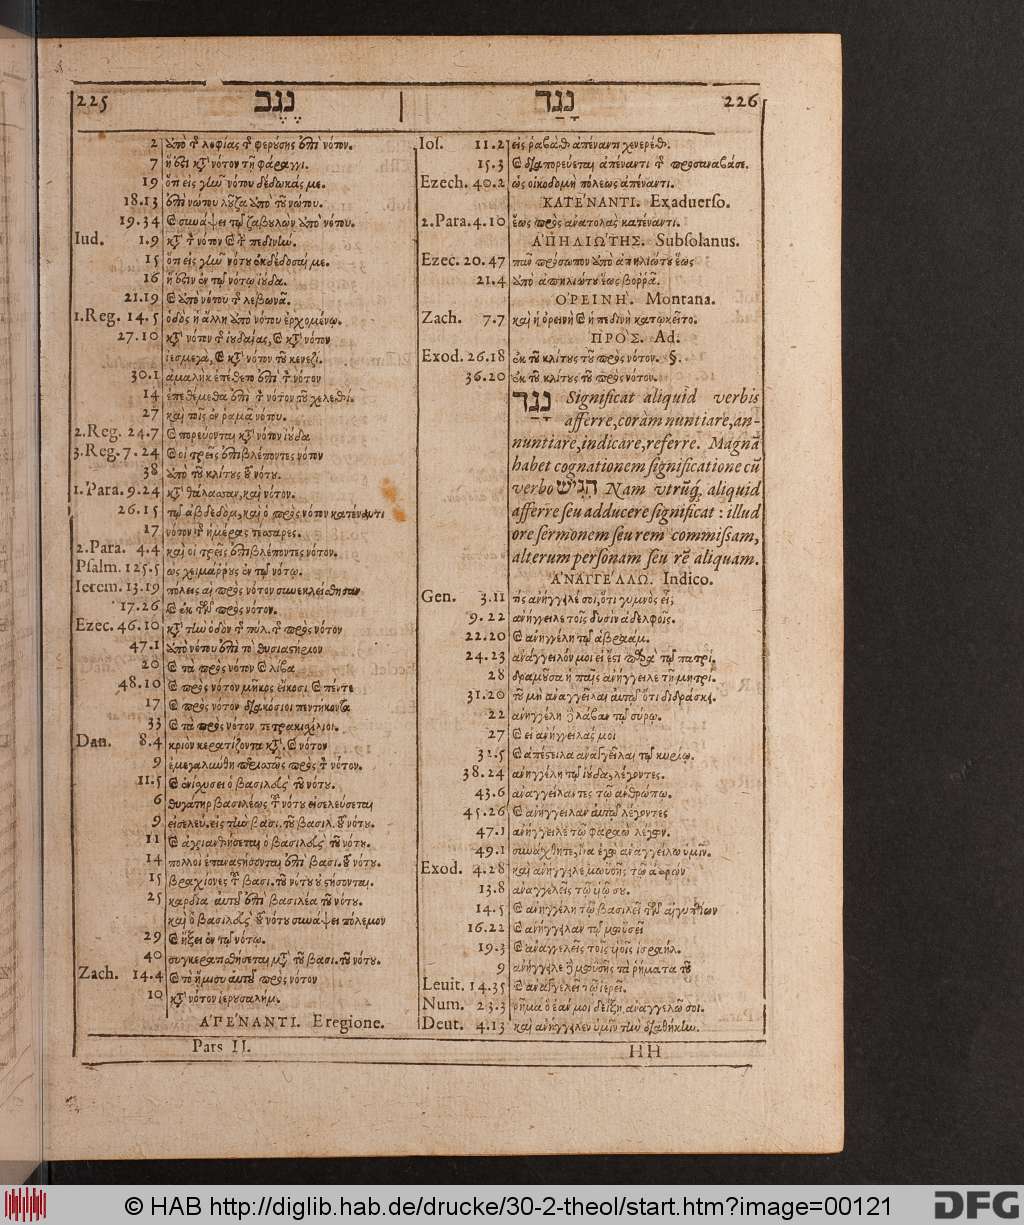 225 נֶגֶב
2 ὑπὸ τ λοφίας τ φερούσης ἐπὶ νότον.
7 ἥ ἐστι κτ νότον τῇ φάραγγι.
19 ὅτι εἰς γῆν νότου δέδωκάς με.
18.13 ἐπὶ νώτου λοῦζα ἀπὸ τοῦ νώτου.
19.34 καὶ συνάψει τῷ ζαβουλὼν ἀπὸ νότου.
Iud. 1.9 κτ τ νότον καὶ τ πεδινὴν.
15 ὅτι εἰς γῆν νότου ἐκδέδοσαί με.
16 ἥ ἐστιν ἐν τῷ νότῳ ἰούδα.
21.19 καὶ ἀπὸ νότου τ λεβωνᾶ.
1.Reg. 14.5 ὁδὸς ἡ ἄλλη ἀπὸ νότου ἐρχομένῳ.
27.10 κτ νότον τ ἰουδαίας, καὶ κτ νότον
ἰεσμεγὰ, καὶ κτ νότον τοῦ κενεζί.
30.1 ἀμαλὴκ ἐπέθετο ἐπὶ τ νότον
14 ἐπεθέμεθα ἐπὶ τ νότον τοῦ χελεθί.
27 καὶ τοῖς ἐν ραμᾶ νότου.
2.Reg. 24.7 καὶ πορεύονται κτ νότον ἰούδα
3.Reg. 7.24 καὶ οἱ τρεῖς ἐπιβλέποντες νότον
38 ἀπὸ τοῦ κλίτους τοῦ νότου.
1.Para. 9.24 κτ θάλασσαν, καὶ νότον.
26.15 τῷ ἀβδεδομ, καὶ ὁ πρὸς νότον κατέναντι
17 νότον τ ἡμέρας τέσσαρες.
2.Para. 4.4 καὶ οἱ τρεῖς ἐπιβλέποντες νότον.
Psalm. 125.5 ὡς χειμάρρους ἐν τῷ νότῳ.
Ierem. 13.19 πόλεις αἱ πρὸς νότον συνεκλείσθησαν
17.26 καὶ ἐκ τῶν πρὸς νότον.
Ezec. 46.10 κτ τὴν ὁδὸν τ πύλ. τ πρὸς νότον
47.1 ἀπὸ νότου ἐπὶ τὸ θυσιαστήριον
20 καὶ τὰ πρὸς νότον καὶ λίβα
48.10 καὶ πρὸς νότον μῆκος εἴκοσι καὶ πέντε
17 καὶ πρὸς νότον διακόσιοι πεντήκοντα
33 καὶ τὰ πρὸς νότον τετρακισχίλιοι.
Dan. 8.4 κριὸν κερατίζοντα κτ. καὶ νότον
9 ἐμεγαλύνθη περισσῶς πρὸς τ νότον.
11.5 καὶ ἐνισχύσει ὁ βασιλεὺς τοῦ νότου.
6 θυγάτηρ βασιλέως τοῦ νότου εἰσελεύσεται
9 εἰσελεύ. εἰς τὴν βασι. τοῦ βασιλ. τοῦ νότου.
11 καὶ ἀγριανθήσεται ὁ βασιλεὺς τοῦ νότου.
14 πολλοὶ ἐπαναστήσονται ἐπὶ βασι. τοῦ νότου.
15 βραχίονες τοῦ βασι. τοῦ νότου οὐ στήσονται.
25 καρδία αὐτοῦ ἐπὶ βασιλέα τοῦ νότου.
καὶ ὁ βασιλεὺς τοῦ νότου συνάψει πόλεμον
29 καὶ ἥξει ἐν τῷ νότῳ.
40 συγκερατισθήσεται μτ τοῦ βασι. τοῦ νότου.
Zach. 14.4 καὶ τὸ ἥμισυ αὐτοῦ πρὸς νότον
10 κτ νότον ἱερουσαλήμ.
ἈΠΈΝΑΝΤΙ. Eregione.
Pars II.
נָגַד 226
Ios. 11.2 εἰς ῥαβὰθ ἀπέναντι χενερέθ.
15.3 καὶ διαπορεύεται ἀπέναντι τ προσαναβάσε.
Ezech. 40.2 ὡς οἰκοδομὴ πόλεως ἀπέναντι.
ΚΑΤΈΝΑΝΤΙ. Exaduerso.
2.Para. 4.10 ἕως πρὸς ἀνατολὰς κατέναντι.
ἈΠΗΛΙΏΤΗΣ. Subsolanus.
Ezec. 20.47 πᾶν πρόσωπον ἀπὸ ἀπηλιώτου ἕως
21.4 ἀπὸ ἀπηλιώτου ἕως βοῤῥᾶ.
ὈΡΕΙΝΉ. Montana.
Zach. 7.7 καὶ ἡ ὀρεινὴ καὶ ἡ πεδινὴ κατῳκεῖτο.
ΠΡΌΣ. Ad.
Exod. 26.18 ἐκ τοῦ κλίτους τοῦ πρὸς νότον. §.
36.20 ἐκ τοῦ κλίτους τοῦ πρὸς νότον.
נָגַד Significat aliquid verbis
afferre, coràm nuntiare, an-
nuntiare, indicare, referre. Magnã
habet cognationem significatione cũ
verbo הִגִּישׁ Nam vtrũq́, aliquid
afferre seu adducere significat: illud
ore sermonem seu rem commissam,
alterum personam seu rẽ aliquam.
ἈΝΑΓΓΈΛΛΩ. Indico.
Gen. 3.11 τίς ἀνήγγειλέ σοι, ὅτι γυμνὸς εἶ;
9.22 ἀνήγγειλε τοῖς δυσὶν ἀδελφοῖς.
22.20 καὶ ἀνηγγέλη τῷ ἀβραάμ.
24.23 ἀνάγγειλόν μοι εἰ ἔστι παρὰ τῷ πατρί.
28 δραμοῦσα ἡ παῖς ἀνήγγειλε τῇ μητρί.
31.20 τοῦ μὴ ἀναγγεῖλαι αὐτῷ ὅτι διδράσκει.
22 ἀνηγγέλη τ λάβαν τῷ σύρῳ.
27 καὶ εἰ ἀνήγγειλάς μοι
32.5 καὶ ἀπέστειλα ἀναγγεῖλαι τῷ κυρίῳ.
38.24 ἀνηγγέλη τῷ ἰούδα, λέγοντες.
43.6 ἀναγγείλαντες τῷ ἀνθρώπῳ.
45.26 καὶ ἀνήγγειλαν αὐτῷ λέγοντες
47.1 ἀνήγγειλε τῷ φαραὼ λέγων.
49.1 συνάχθητε, ἵνα ἐγὼ ἀναγγείλω ὑμῖν.
Exod. 4.28 καὶ ἀνήγγειλε μωυσῆς τῷ ἀαρὼν
13.8 ἀναγγελεῖς τῷ υἱῷ σου.
14.5 καὶ ἀνηγγέλη τῷ βασιλεῖ τῶν αἰγυπτίων
16.22 καὶ ἀνήγγειλαν τῷ μωυσεῖ
19.3 καὶ ἀναγγελεῖς τοῖς υἱοῖς ἰσραήλ.
9 ἀνήγγειλε τ μωυσῆς τὰ ῥήματα τοῦ
Leuit. 14.35 καὶ ἀναγγελεῖ τῷ ἱερεῖ.
Num. 23.3 ῥῆμα ὃ ἐάν μοι δείξῃ, ἀναγγελῶ σοι.
Deut. 4.13 καὶ ἀνήγγειλεν ὑμῖν τὴν διαθήκην.
HH
© HAB http://diglib.hab.de/drucke/30-2-theol/start.htm?image=00121
DFG